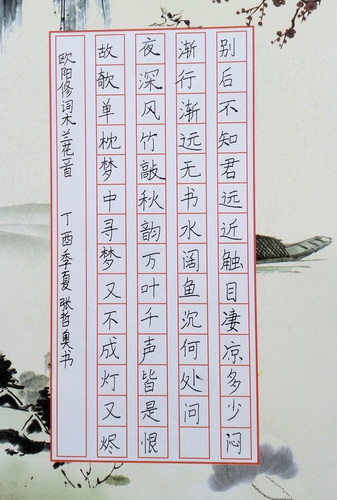 别后不知君远近触目凄凉多少闷
渐行渐远无书水阔鱼沉何处问
夜深风竹敲秋韵万叶千声皆是恨
故欹单枕梦中寻梦又不成灯又烬
欧阳修词木兰花一首 丁酉季夏张哲奥书